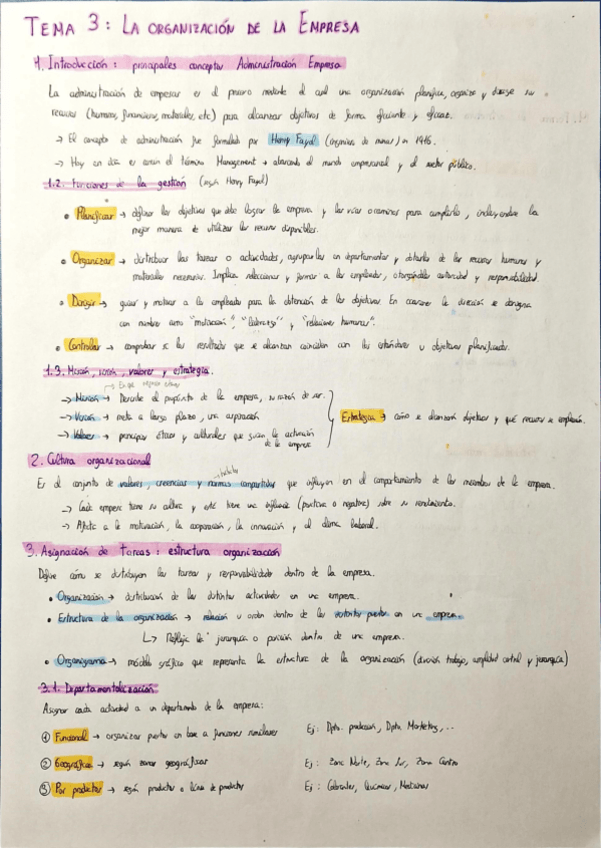 TEMA 3: LA ORGANIZACIÓN DE LA EMPRESA
1. Introducción: principales conceptos Administración Empresa
La administración de empresas es el proceso mediante el cual una organización planifica, organiza y dirige sus
recursos (humanos, financieros, materiales, etc) para alcanzar objetivos de forma eficiente y eficaz.
→ El concepto de administración fue formulado por Henry Fayol (ingeniero de minas) en 1916.
→ Hoy en día es común el término Management → abarcando el mundo empresarial y el sector público.
1.2. Funciones de la gestión (según Henry Fayol)
• Planificar → definir los objetivos que debe lograr la empresa y las vías o caminos para cumplirlo, incluyendo la
mejor manera de utilizar los recursos disponibles.
• Organizar → distribuir las tareas o actividades, agruparlas en departamentos y dotarlos de los recursos humanos y
materiales necesarios. Implica seleccionar y formar a los empleados, otorgándoles autoridad y responsabilidad.
• Dirigir → guiar y motivar a los empleados para la obtención de los objetivos. En ocasiones la dirección se designa
con nombres como "motivación", "liderazgo" y "relaciones humanas".
• Controlar → comprobar si los resultados que se alcanzan coinciden con los estándares u objetivos planificados.
1.3. Misión, visión, valores y estrategia.
→ Misión → Describe el propósito de la empresa, su razón de ser.
→ Visión → meta a largo plazo, una aspiración
→ Valores → principios éticos y culturales que guían la actuación
de la empresa
Estrategia → cómo se alcanzarán objetivos y qué recursos se emplearán.
2. Cultura organizacional
Es el conjunto de valores, creencias y normas compartidas que influyen en el comportamiento de los miembros de la empresa.
→ Cada empresa tiene su cultura y esta tiene una influencia (positiva o negativa) sobre su rendimiento.
→ Afecta a la motivación, la cooperación, la innovación y el clima laboral.
3. Asignación de tareas: estructura organización
Define cómo se distribuyen las tareas y responsabilidades dentro de la empresa.
• Organización → distribución de las distintas actividades en una empresa.
• Estructura de la organización → relación u orden dentro de los distintos puestos en una empresa.
↳ Refleja la jerarquía o posición dentro de una empresa.
• Organigrama → modelo gráfico que representa la estructura de la organización (división trabajo, amplitud control y jerarquía)
3.1. Departamentalización
Asignar cada actividad a un departamento de la empresa:
① Funcional → organizar puestos en base a funciones similares Ej: Dpto. producción, Dpto. Marketing, ...
② Geográficos → según zonas geográficas Ej: Zona Norte, Zona Sur, Zona Centro
③ Por productos → según productos o línea de productos Ej: